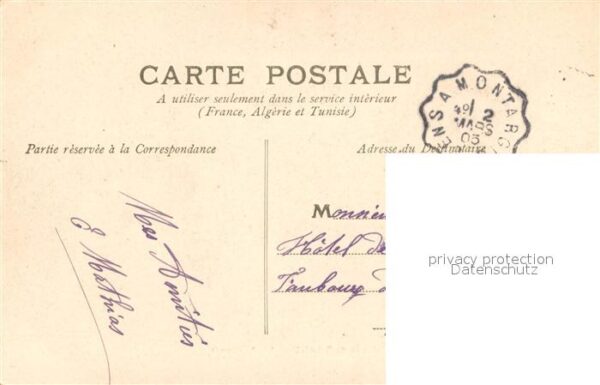 CARTE POSTALE
A utiliser seulement dans le service intérieur
(France, Algérie et Tunisie)
Partie réservée à la Correspondance
Adresse du Destinataire
ENS A MONTARG
2
MARS
03
Mes Amitiés
E Mathias
Monsieu
Hôtel de
Faubourg
privacy protection
Datenschutz